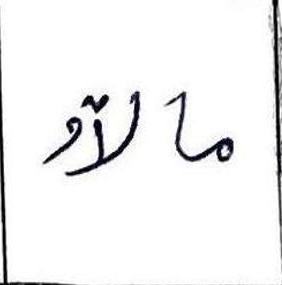 ماڵاو